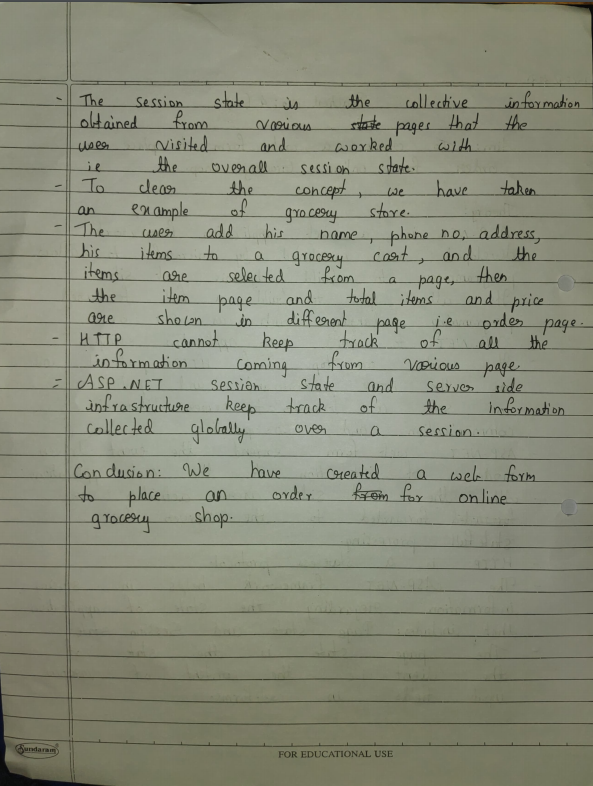 - The session state is the collective information
obtained from various state pages that the
user visited and worked with
i.e the overall session state.
- To clear the concept, we have taken
an example of grocery store.
- The user add his name, phone no, address,
his items to a grocery cart, and the
items are selected from a page, then
the item page and total items and price
are shown in different page i.e order page.
- HTTP cannot keep track of all the
information coming from various page.
- ASP.NET session state and server side
infrastructure keep track of the information
collected globally over a session.
Conclusion: We have created a web form
to place an order from for online
grocery shop.
Sundaram
FOR EDUCATIONAL USE